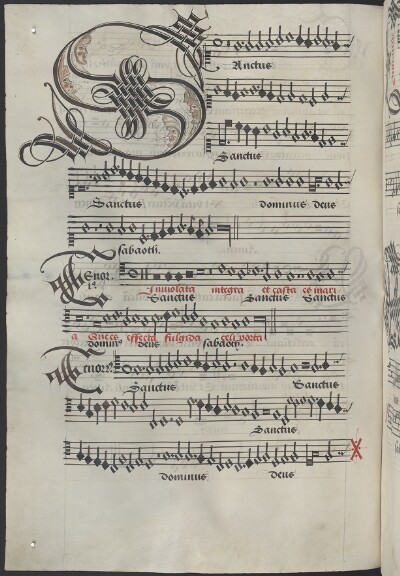 Sanctus
Sanctus
Sanctus dominus deus
sabaoth.
Tenor. 1ᵘˢ
Inviolata integra et casta es mari
Sanctus Sanctus Sanctus
a Que es effecta fulgida celi porta
dominus deus sabaoth.
Tenor
Sanctus Sanctus
Sanctus
dominus deus